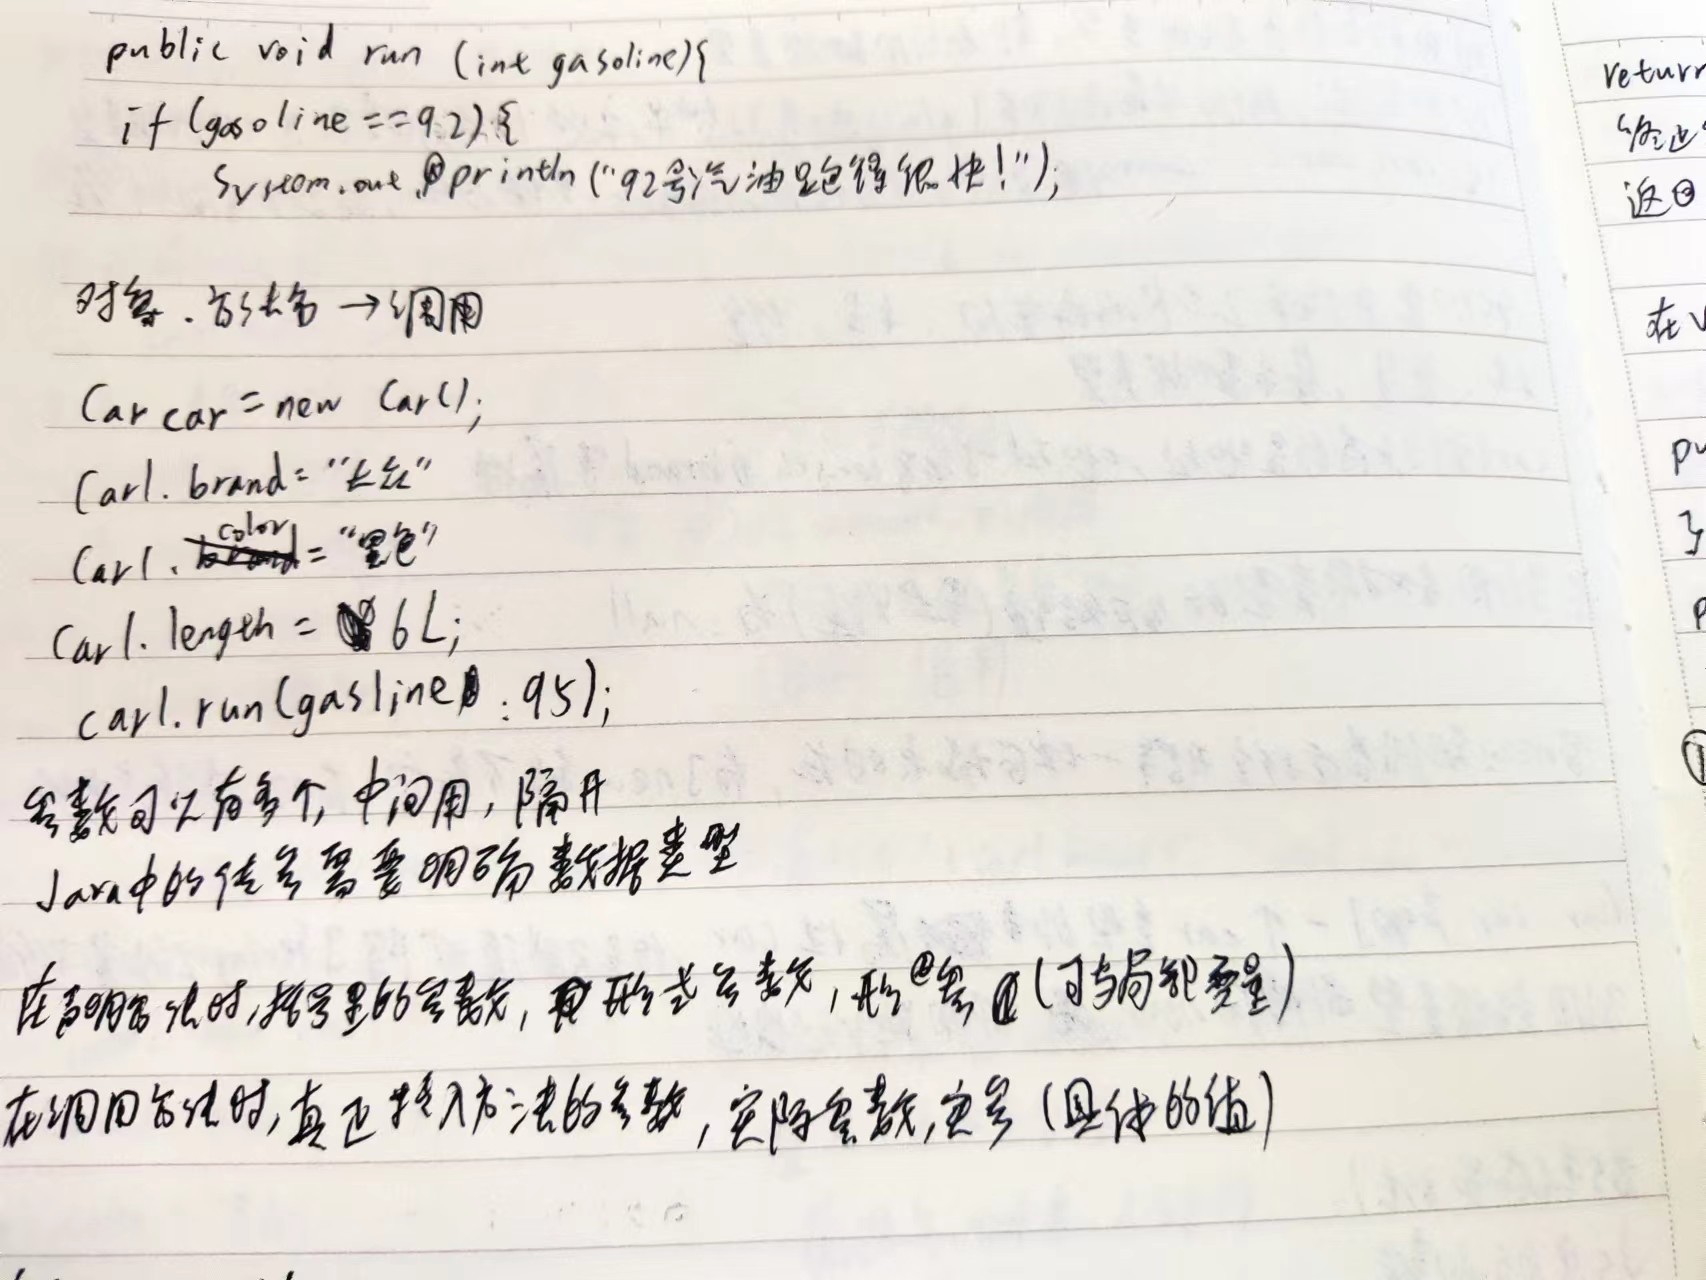 public void run (int gasoline){
if (gasoline ==92){
System.out.println("92号汽油跑得很快!");
对象.方法名→调用
Car car = new Car();
Car1. brand = "大众"
Car1. color = "黑色"
Car1. length = 6L;
car1.run(gasline : 95);
参数可以有多个,中间用,隔开
Java中的传参需要明确数据类型
在声明方法时,括号里的参数, 形式参数,形参(可当局部变量)
在调用方法时,真正传入方法的参数,实际参数,实参(具体的值)
返回
在
①